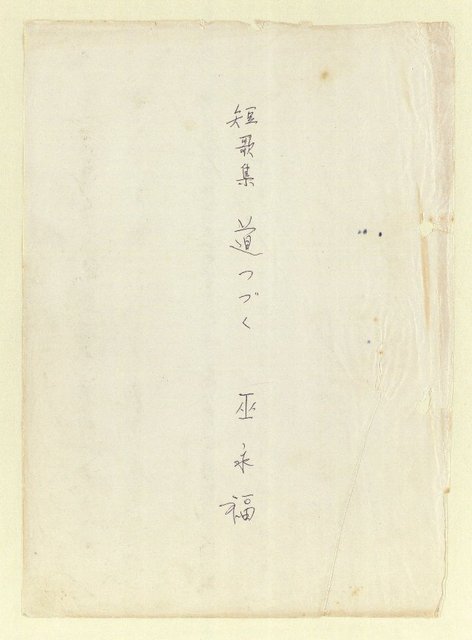 短歌集 道つづく 巫永福